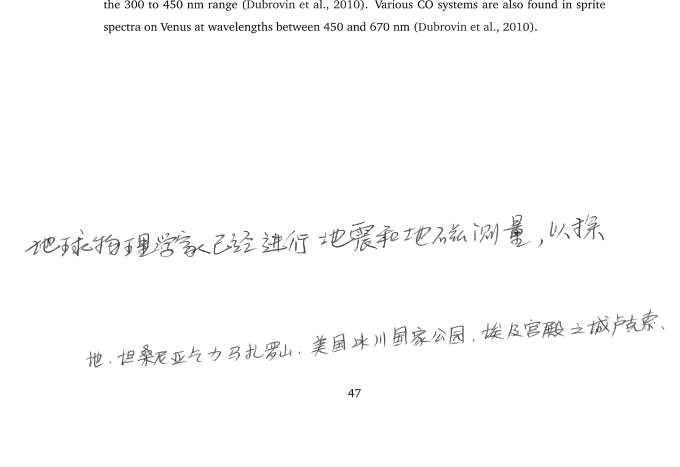 the 300 to 450 nm range (Dubrovin et al., 2010). Various CO systems are also found in sprite
spectra on Venus at wavelengths between 450 and 670 nm (Dubrovin et al., 2010).
地球物理学家已经进行地震和地磁测量,以探
地、坦桑尼亚乞力马扎罗山、美国冰川国家公园、埃及宫殿之城卢克索、
47